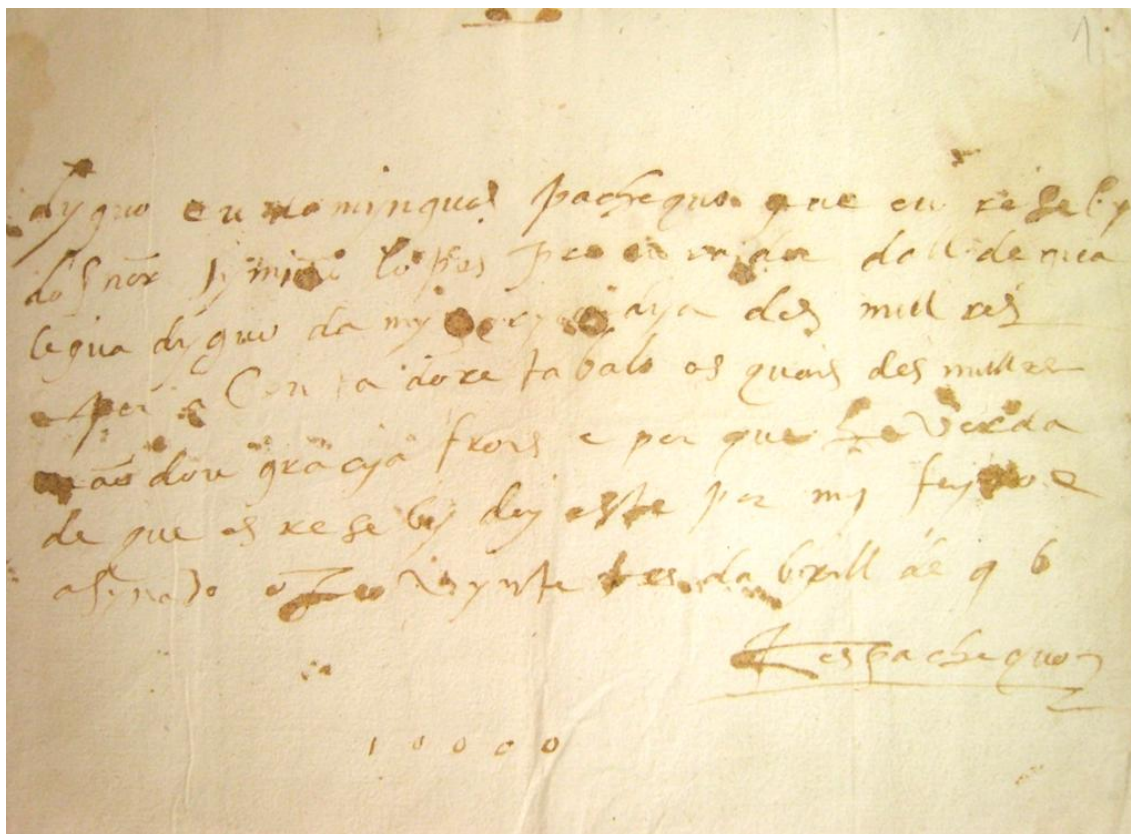 1
dyguo eu domynguos pachequo que eu reseby
do snor symão lopes procurador dall de mea
legua dyguo da my dya des mill res
per a Conta do re tabalo os quais des mill re
dou gracya frois e por que he verda
de que os reseby dey este por my feyto e
asynado oze vynte tres da brill de 9 6
pachequo
10000